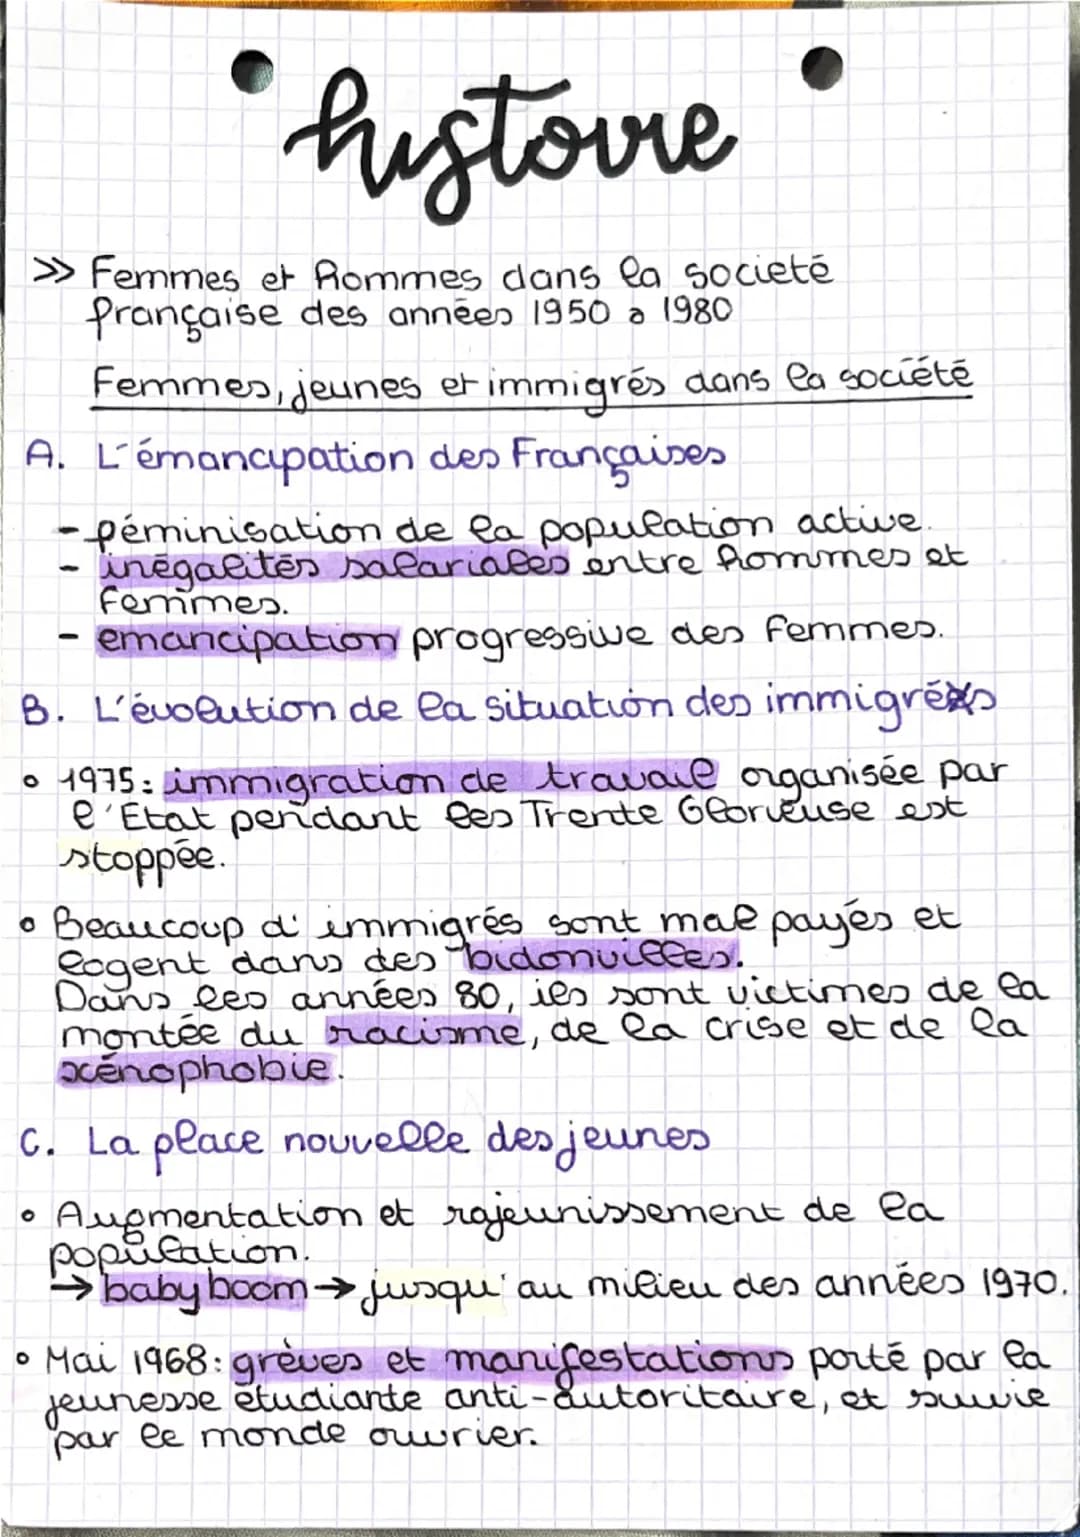 histoire
>> Femmes et hommes dans la societé
française des années 1950 a 1980
Femmes, jeunes et immigrés dans la société
A. L'émancipation des Françaises
- féminisation de la population active.
- inégalités salariales entre hommes et
femmes.
- emancipation progressive des femmes.
B. L'évolution de la situation des immigrés
• 1975: immigration de travail organisée par
l'État pendant les Trente Glorieuse est
stoppée.
• Beaucoup d'immigrés sont mal payés et
logent dans des bidonvilles.
Dans les années 80, ils sont victimes de la
montée du racisme, de la crise et de la
xénophobie.
C. La place nouvelle des jeunes
• Augmentation et rajeunissement de la
population.
→ baby boom → jusqu'au milieu des années 1970.
• Mai 1968: grèves et manifestations porté par la
jeunesse étudiante anti-autoritaire, et suivie
par le monde ouvrier.